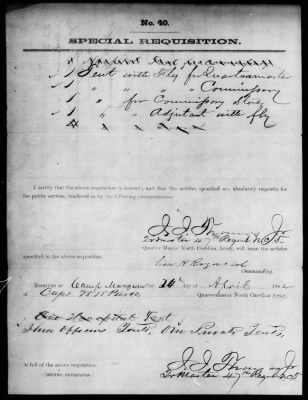 No. 40.
SPECIAL REQUISITION.
1 Tent with Fly for Quartermaster
1 " " " " Commissary
1 " for Commissary Stores
1 " " Adjutant with fly
I certify that the above requisition is correct; and that the articles specified are absolutely requisite for
the public service, rendered so by the following circumstances:
Qr Master 47 Regnt N.C.T.
Quarter Master North Carolina Army, will issue the articles
specified in the above requisition.
Commanding.
Received at Camp Mangum the 24th of April 1862 of
Capt W W Peirce Quartermaster North Carolina Army,
One Hospital Tent
Three Officers Tents, One Private Tents,
in full of the above requisition
(SIGNED DUPLICATES.)
Qr Master 47 Regnt N.C.T.